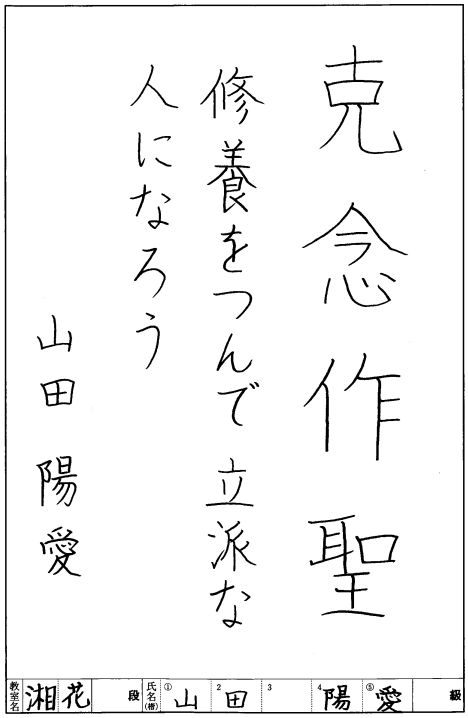 克念作聖
修養をつんで立派な
人になろう
山田陽愛
教室名 湘花 段 氏名(楷) ①山 2田 3 4陽 ⑤愛 級